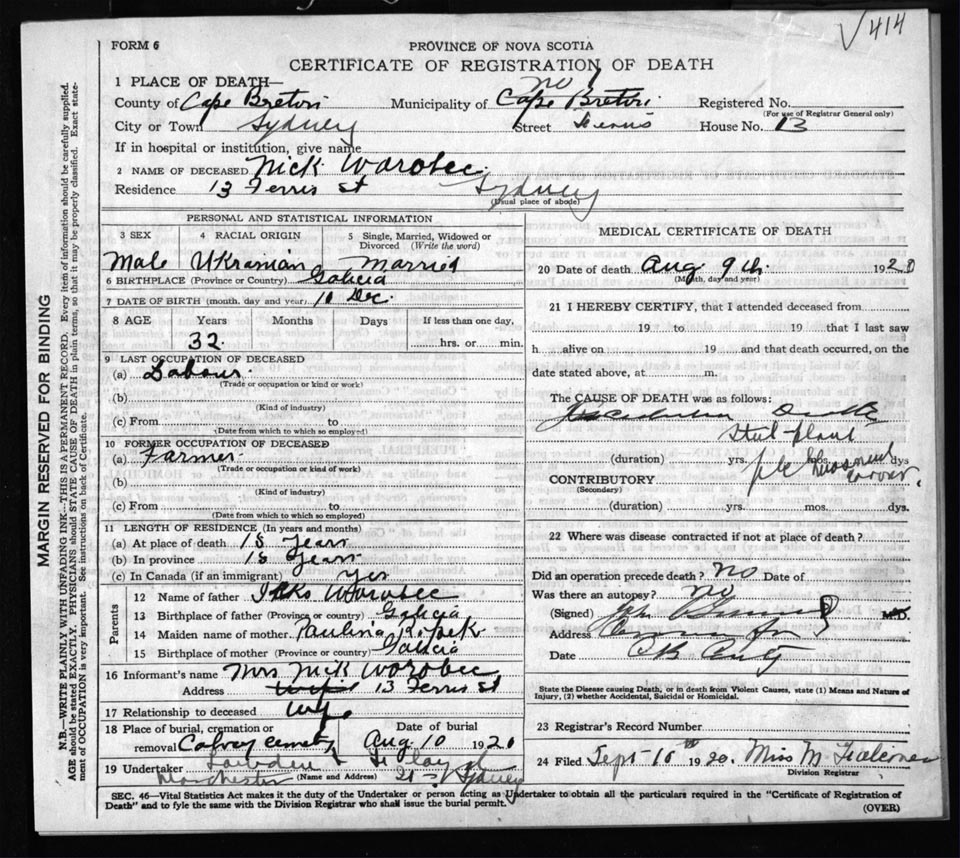 √414
FORM 6
PROVINCE OF NOVA SCOTIA
CERTIFICATE OF REGISTRATION OF DEATH
1 PLACE OF DEATH—
No 1
County of Cape Breton Municipality of Cape Breton Registered No.
(For use of Registrar General only)
City or Town Sydney Street Ferris House No. 13
If in hospital or institution, give name
2 NAME OF DECEASED Nick Worobec
Residence 13 Ferris St Sydney
(Usual place of abode)
PERSONAL AND STATISTICAL INFORMATION
3 SEX 4 RACIAL ORIGIN 5 Single, Married, Widowed or Divorced (Write the word)
Male Ukranian Married
6 BIRTHPLACE (Province or Country) Galicia
7 DATE OF BIRTH (month, day and year) 10 Dec.
8 AGE Years Months Days If less than one day,
32 hrs. or min.
9 LAST OCCUPATION OF DECEASED
(a) Labour
(Trade or occupation or kind or work)
(b)
(Kind of industry)
(c) From to
(Date from which to which so employed)
10 FORMER OCCUPATION OF DECEASED
(a) Farmer
(Trade or occupation or kind of work)
(b)
(Kind of industry)
(c) From to
(Date from which to which so employed)
11 LENGTH OF RESIDENCE (In years and months)
(a) At place of death 18 Years
(b) In province 18 Years
(c) In Canada (if an immigrant) Yes
Parents
12 Name of father Worobec
13 Birthplace of father (Province or country) Galicia
14 Maiden name of mother Paulina
15 Birthplace of mother (Province or country) Galicia
16 Informant's name Mrs Nick Worobec
Address 13 Ferris St
17 Relationship to deceased Wife
18 Place of burial, cremation or removal Calvry Cemety Date of burial Aug 10 1920
19 Undertaker
Manchester (Name and Address) Sydney
MEDICAL CERTIFICATE OF DEATH
20 Date of death Aug 9th 1920
(Month, day and year)
21 I HEREBY CERTIFY, that I attended deceased from
19 to 19 that I last saw
h alive on 19 and that death occurred, on the
date stated above, at m.
The CAUSE OF DEATH was as follows:
Accidental Death
Steel plant
(duration) yrs. mos. days
CONTRIBUTORY
(Secondary)
(duration) yrs. mos. dys.
22 Where was disease contracted if not at place of death?
Did an operation precede death? No Date of
Was there an autopsy? No
(Signed) M.D.
Address
Date
State the Disease causing Death, or in death from Violent Causes, state (1) Means and Nature of
Injury, (2) whether Accidental, Suicidal or Homicidal.
23 Registrar's Record Number
24 Filed Sept 10th 1920. Miss M.
Division Registrar
SEC. 46—Vital Statistics Act makes it the duty of the Undertaker or person acting as Undertaker to obtain all the particulars required in the "Certificate of Registration of
Death" and to fyle the same with the Division Registrar who shall issue the burial permit.
(OVER)
MARGIN RESERVED FOR BINDING
N.B.—WRITE PLAINLY WITH UNFADING INK—THIS IS A PERMANENT RECORD. Every item of information should be carefully supplied.
AGE should be stated EXACTLY. PHYSICIANS should STATE CAUSE OF DEATH in plain terms, so that it may be properly classified. Exact statement of OCCUPATION is very important. See instructions on back of Certificate.